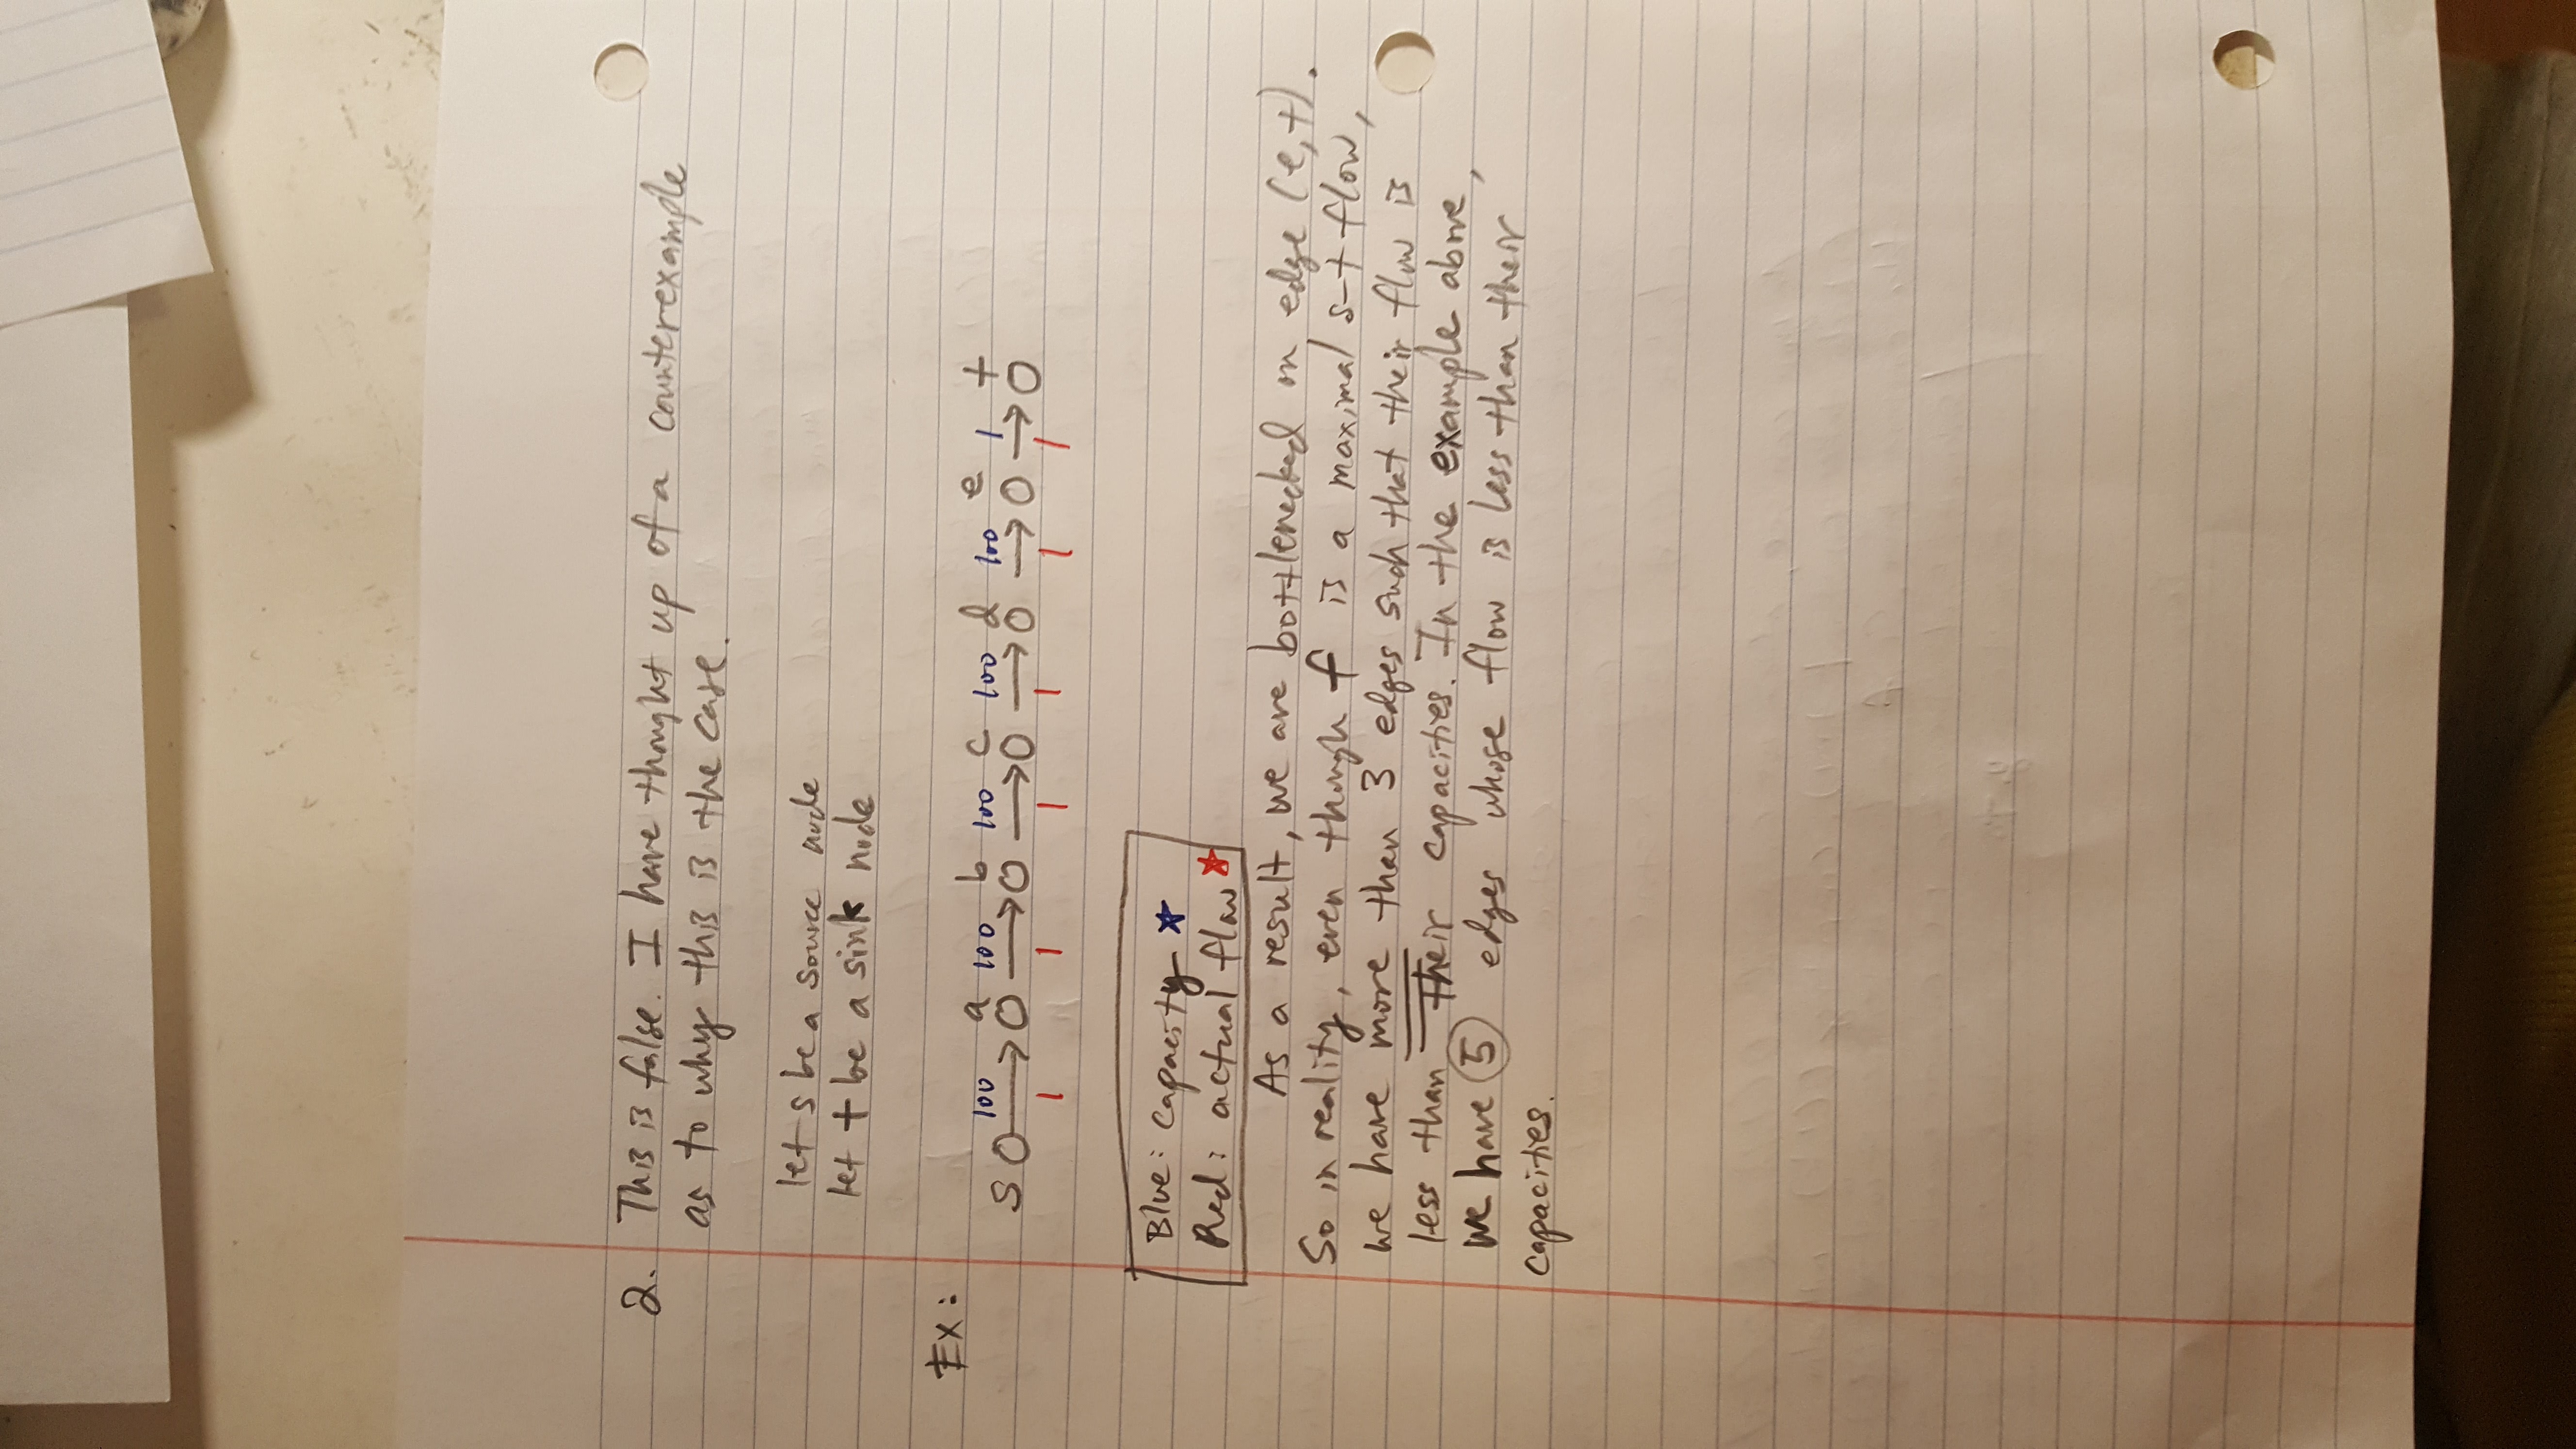 2. This is false. I have thought up of a counterexample
as to why this is the case.
let s be a source node
let t be a sink node
Ex:
a b c d e t
100 100 100 100 100 1
S
1 1 1 1 1 1
Blue: capacity
Red: actual flow
As a result, we are bottlenecked on edge (e,t).
So in reality, even though f is a maximal s-t flow,
we have more than 3 edges such that their flow is
less than their capacities. In the example above,
we have 5 edges whose flow is less than their
capacities.